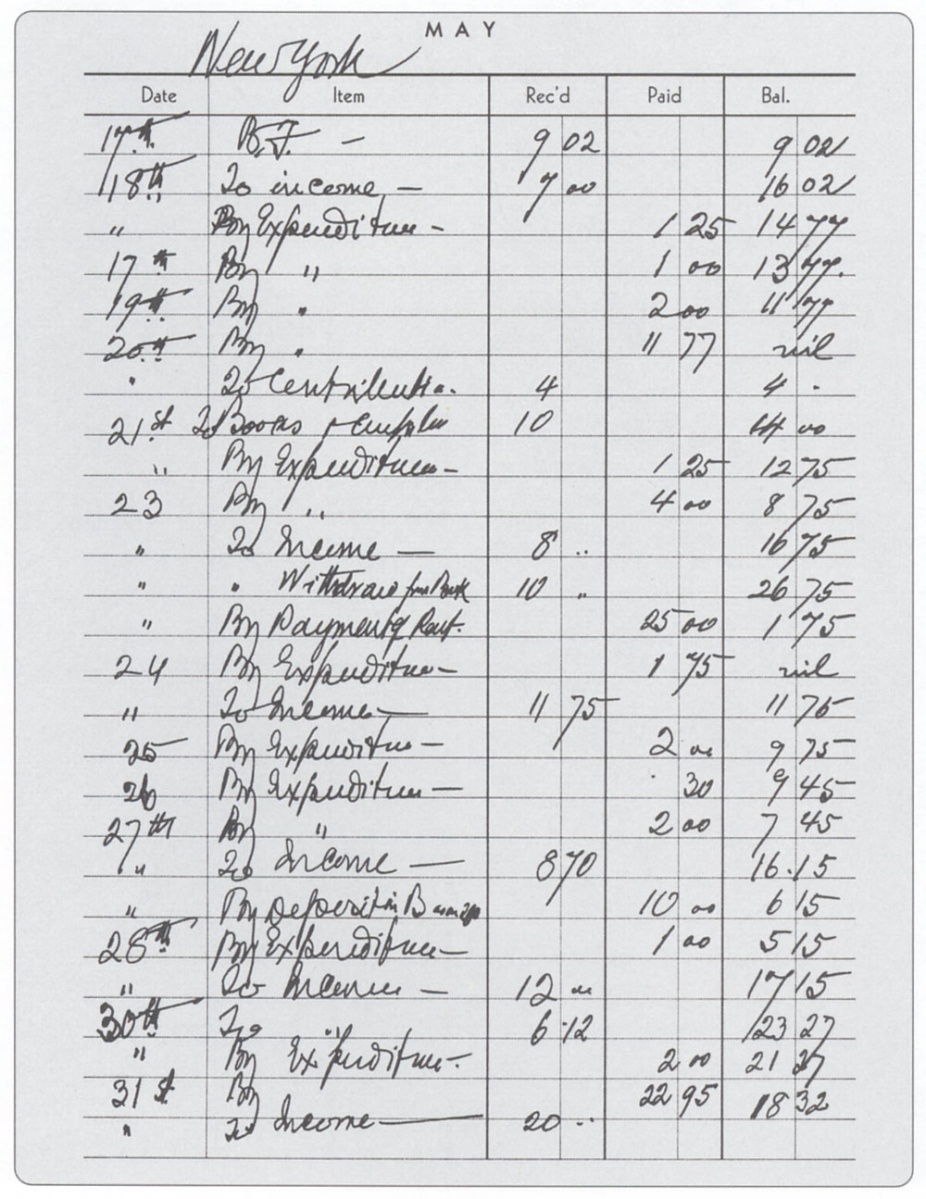 MAY
New York
Date Item Rec'd Paid Bal.
17th B.F. — 9 02 9 02
18th To income — 7 00 16 02
" By Expenditure - 1 25 14 77
17th By " 1 00 13 77.
19th By " 2 00 11 77
20th By " 11 77 nil
" To Contributio. 4 4 -
21st To Books + 10 14 00
" By Expenditure - 1 25 12 75
23 By " 4 00 8 75
" To Income — 8 .. 16 75
" " Withdraw from Bank 10 " 26 75
" By Payment of Rent. 25 00 1 75
24 By Expenditure - 1 75 nil
" To Income — 11 75 11 75
25 By Expenditure - 2 00 9 75
26 By Expenditure — 30 9 45
27th By " 2 00 7 45
" To Income — 8 70 16.15
" By Deposit in 10 00 6 15
28th By Expenditure - 1 00 5 15
" To Income - 12 00 17 15
30th To " 6.12 23 27
" By Expenditure -. 2 00 21 27
31st By 22 95 18 32
" To Income — 20 --